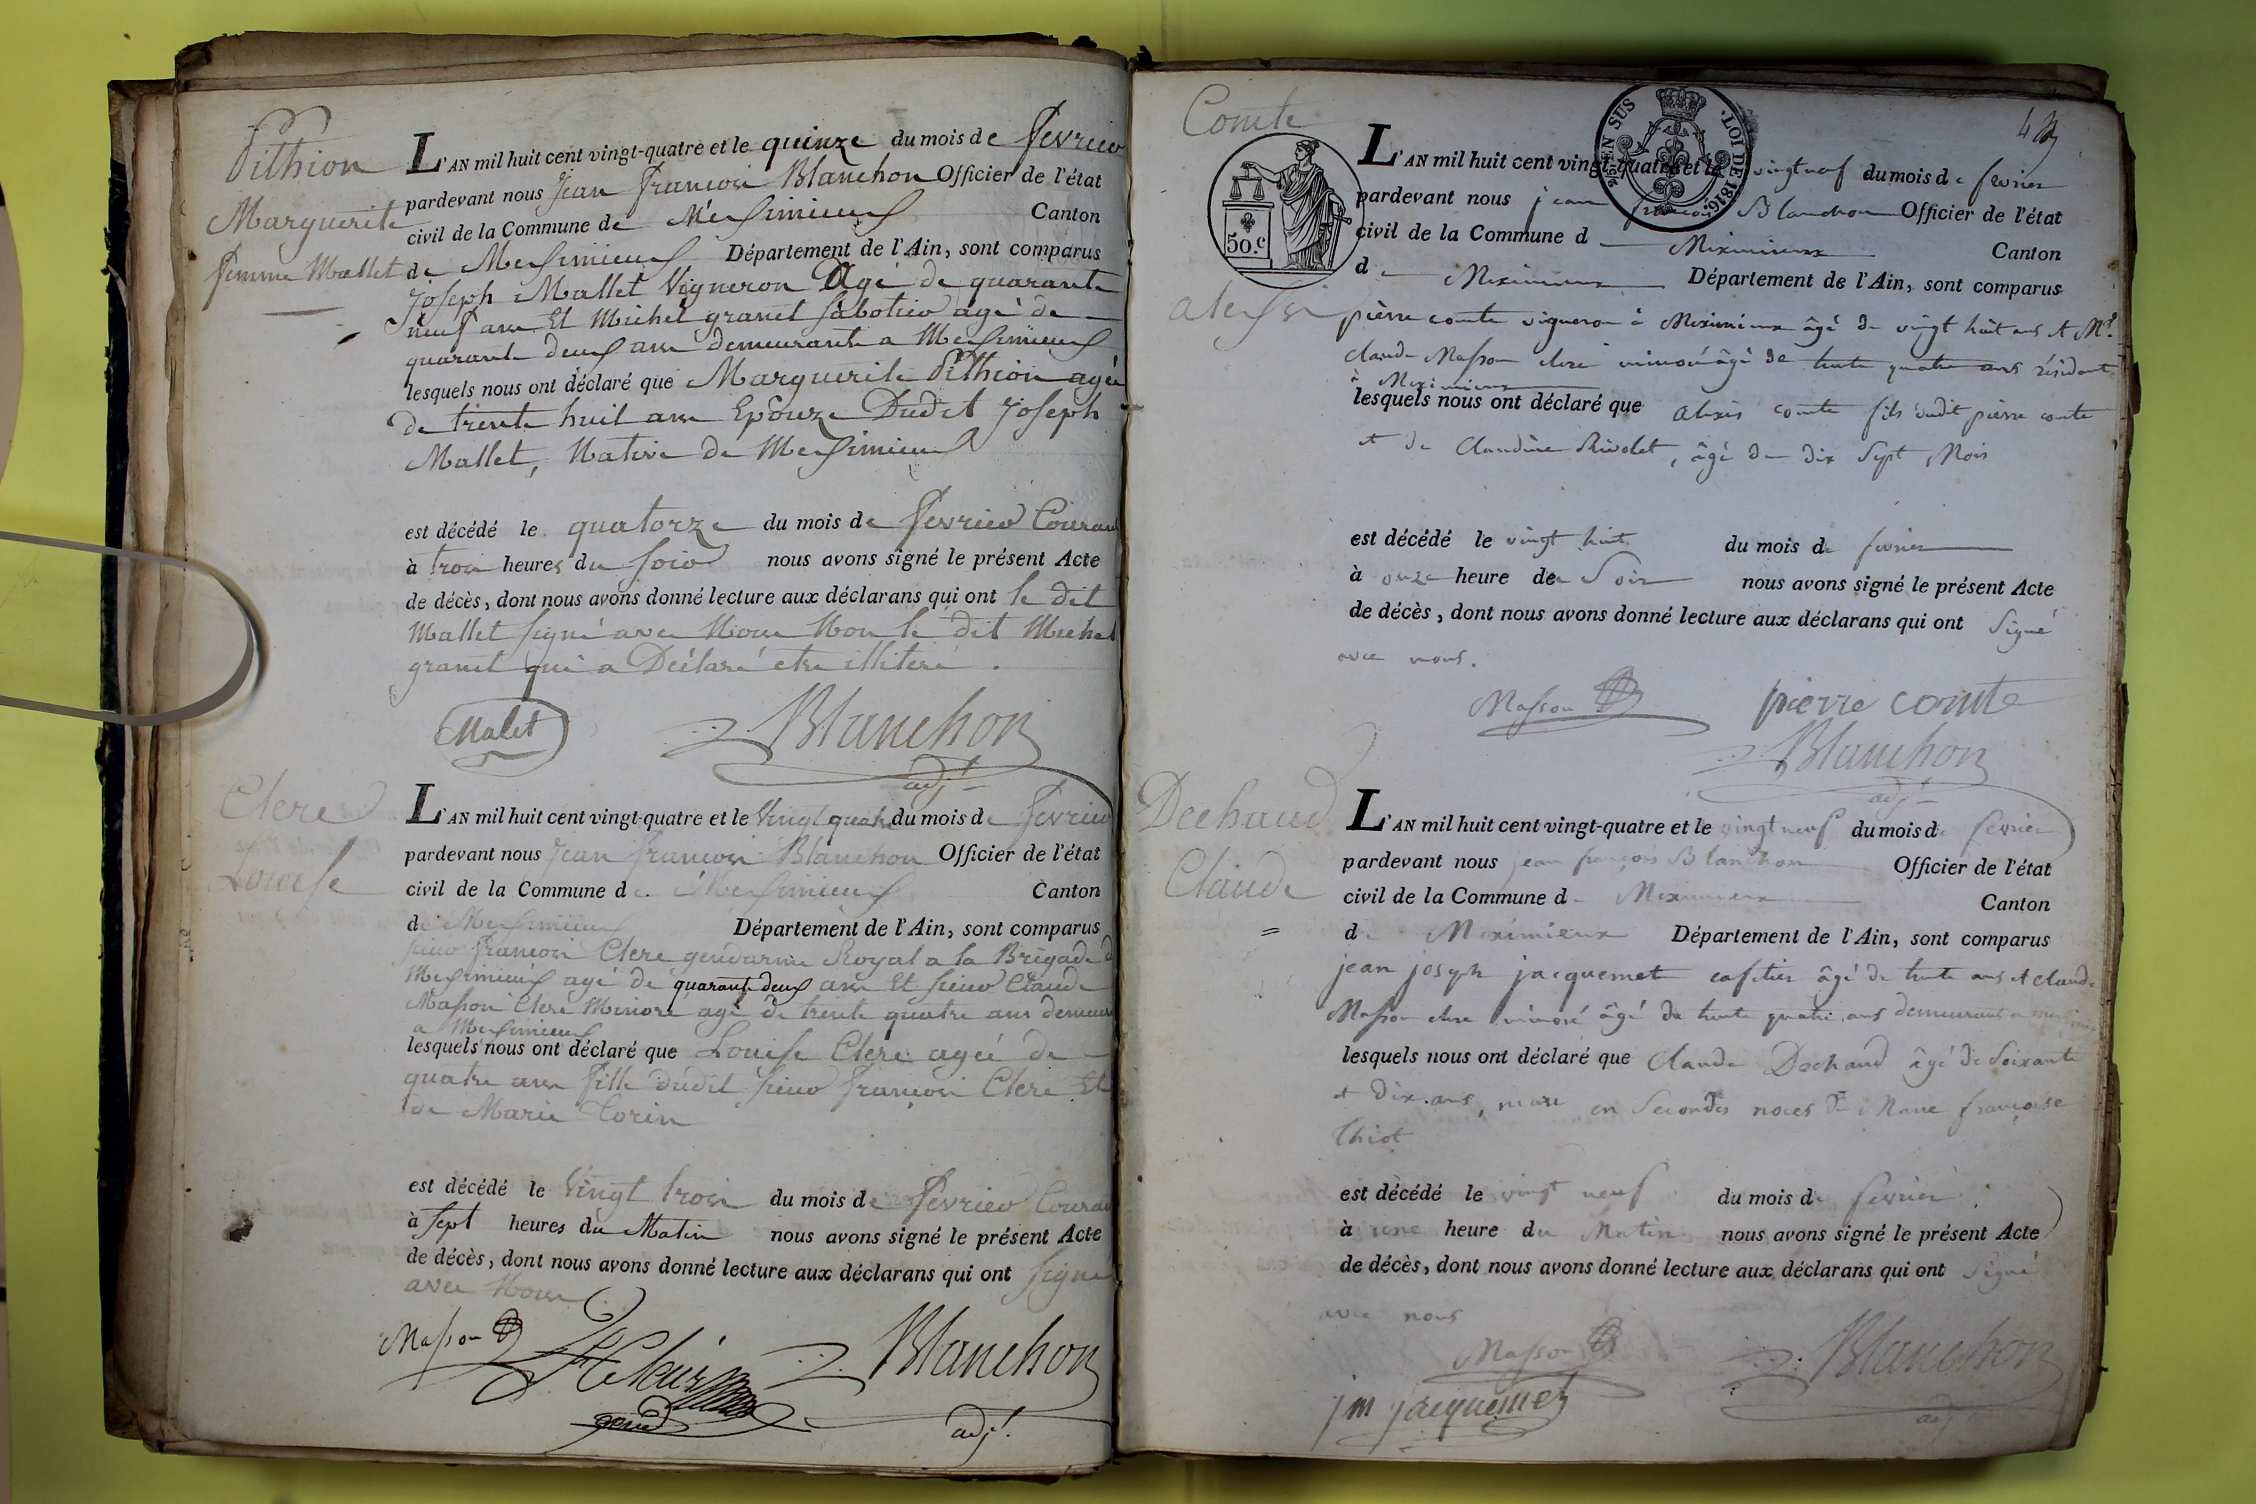 Pithion
Marguerite
femme Mallet
L'AN mil huit cent vingt-quatre et le quinze du mois de fevrier
pardevant nous Jean françois Blanchon Officier de l'état
civil de la Commune de Meximieux Canton
de Meximieux Département de l'Ain, sont comparus
Joseph Mallet Vigneron Agé de quarante
neuf ans Et Michel granet Sabotier agé de
quarante deux ans demeurants a Meximieux
lesquels nous ont déclaré que Marguerite Pithion agée
de trente huit ans Epouze Dudit Joseph
Mallet, Native de Meximieux
est décédé le quatorze du mois de fevrier Courant
à trois heures du soir nous avons signé le présent Acte
de décès, dont nous avons donné lecture aux déclarans qui ont le dit
Mallet signé avec Nous Non le dit Michel
granet qui a Déclaré etre illiteré.
Malet Blanchon
adjt
Clere
Louise
L'AN mil huit cent vingt-quatre et le Vingt quatre du mois de fevrier
pardevant nous Jean françois Blanchon Officier de l'état
civil de la Commune de Meximieux Canton
de Meximieux Département de l'Ain, sont comparus
sieur françois Clere gendarme Royal a la Brigade d
Meximieux agé de quarante deux ans Et sieur Claude
Masson Clere Minoré agé de trente quatre ans demeurt
a Meximieux
lesquels nous ont déclaré que Louise Clere agée de
quatre ans fille dudit sieur françois Clere Et
de Marie Corin
est décédé le Vingt trois du mois de fevrier Courant
à sept heures du Matin nous avons signé le présent Acte
de décès, dont nous avons donné lecture aux déclarans qui ont signé
avec Nous
Masson Blanchon
adjt
Comte
alexis
50.c
EN SUS LOI DE 1816.
L'AN mil huit cent vingt-quatre et le vingt neuf du mois de fevrier
pardevant nous jean françois Blanchon Officier de l'état
civil de la Commune d Meximieux Canton
d Meximieux Département de l'Ain, sont comparus
pierre comte vigneron à Meximieux âgé de vingt huit ans et Mr.
claude Masson clerc minoré âgé de trente quatre ans résidant
à Meximieux
lesquels nous ont déclaré que alexis comte fils dudit pierre comte
et de Claudine Rivolet, âgé de dix sept Mois
est décédé le vingt huit du mois de fevrier
à onze heure de Soir nous avons signé le présent Acte
de décès, dont nous avons donné lecture aux déclarans qui ont signé
avec nous.
Masson pierre comte
Blanchon
adjt
Dechaud
Claude
L'AN mil huit cent vingt-quatre et le vingt neuf du mois de fevrier
pardevant nous jean françois Blanchon Officier de l'état
civil de la Commune d Meximieux Canton
d Meximieux Département de l'Ain, sont comparus
jean joseph jacquemet cafetier âgé de trente ans et claude
Masson clerc minoré âgé de trente quatre ans demeurant a
lesquels nous ont déclaré que Claude Dechaud âgé de soixante
et dix ans, mari en secondes noces de Marie françoise
Thiot
est décédé le vingt neuf du mois de fevrier
à une heure du Matin nous avons signé le présent Acte
de décès, dont nous avons donné lecture aux déclarans qui ont signé
avec nous
Masson Blanchon
jm jacquemet adjt